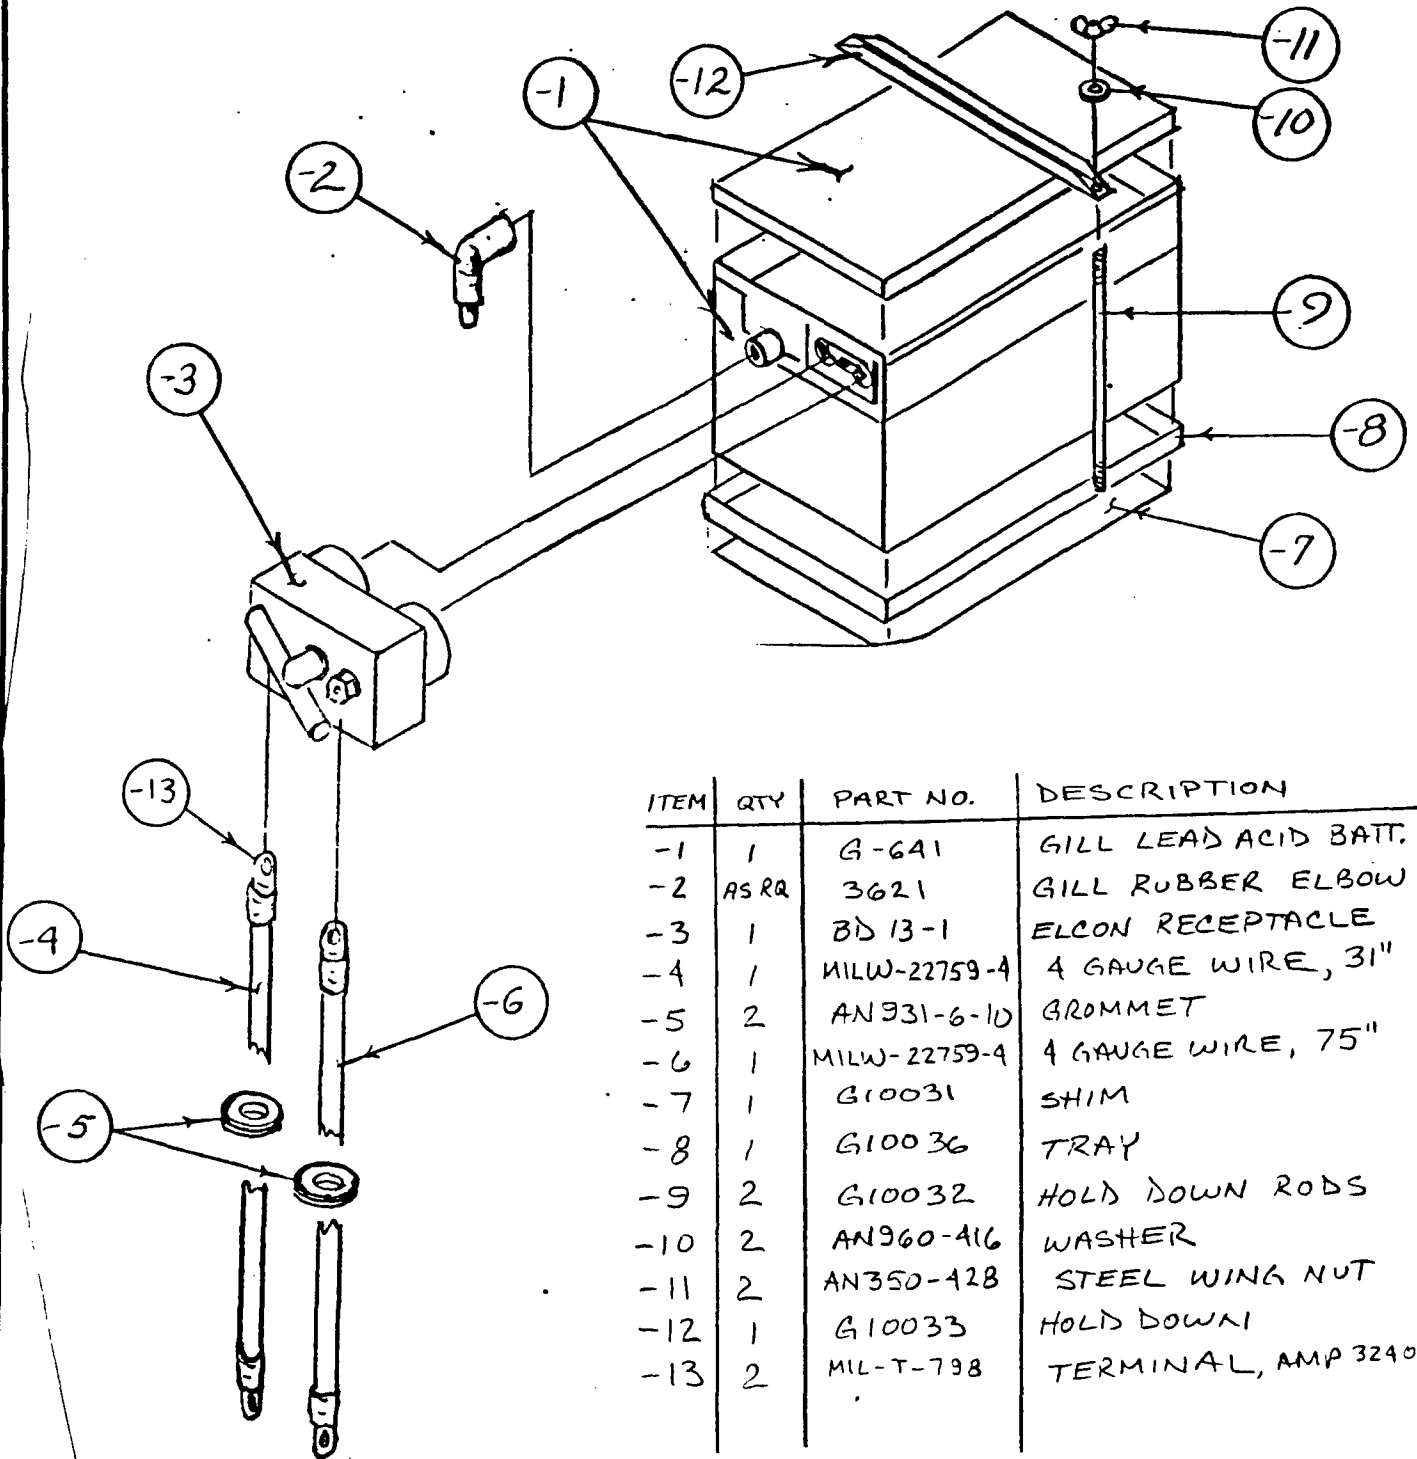 -11
-12
-1
-10
-2
-9
-3
-8
-7
-13
-4
-6
-5
ITEM QTY PART NO. DESCRIPTION
-1 1 G-641 GILL LEAD ACID BATT.
-2 AS RQ 3621 GILL RUBBER ELBOW
-3 1 BD 13-1 ELCON RECEPTACLE
-4 1 MILW-22759-4 4 GAUGE WIRE, 31"
-5 2 AN931-6-10 GROMMET
-6 1 MILW-22759-4 4 GAUGE WIRE, 75"
-7 1 G10031 SHIM
-8 1 G10036 TRAY
-9 2 G10032 HOLD DOWN RODS
-10 2 AN960-416 WASHER
-11 2 AN350-428 STEEL WING NUT
-12 1 G10033 HOLD DOWN
-13 2 MIL-T-798 TERMINAL, AMP 3240